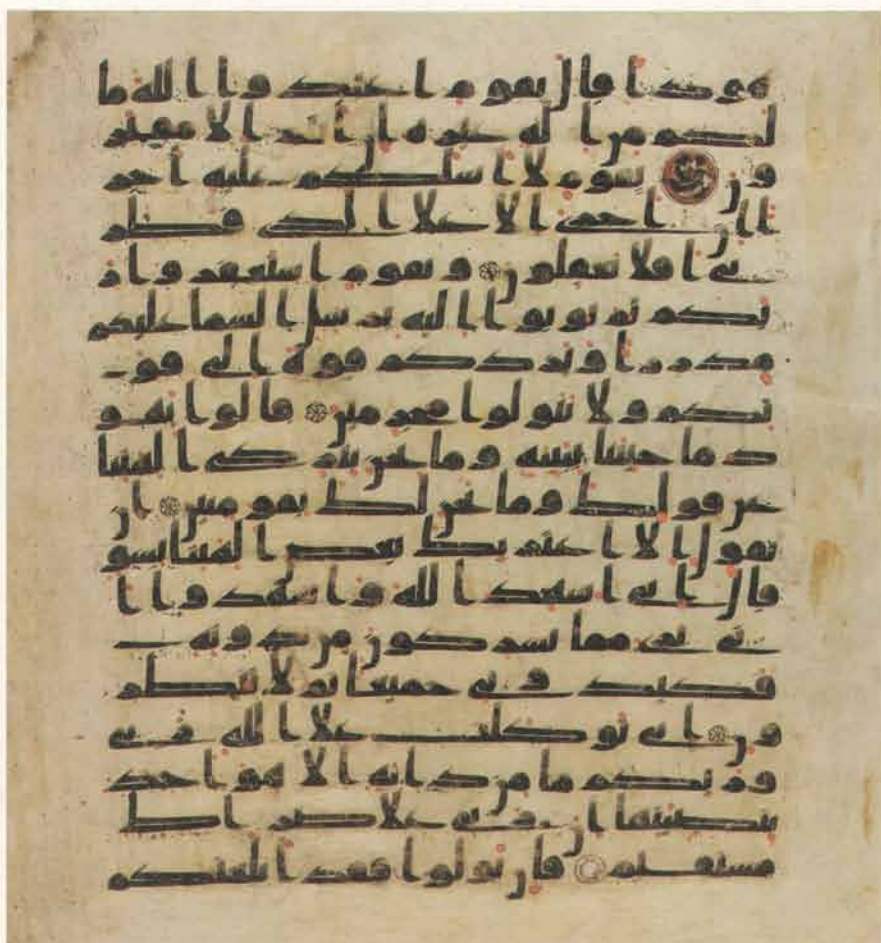 هودا قال يقوم اعبدوا الله ما
لكم من اله غيره ان انتم الا مفتر
ون يقوم لا اسلكم عليه اجر
ا ان اجري الا علا الذي فطر
ني افلا تعقلون ويقوم استغفروا ر
بكم ثم توبوا اليه يرسل السما عليكم
مدررا ويزدكم قوة الى قو
تكم ولا تتولوا مجرمين قالوا يهو
د ما جيتنا ببينه وما نحن بتركي الهتنا
عن قولك وما نحن لك بمومنين ان
نقول الا اعتريك بعض الهتنا بسو
قال اني اشهد الله واشهدوا ا
ني بري مما تشركون من دونه
فكيدوني جميعا ثم لا تنظر
ون اني توكلت علا الله ربي
وربكم ما من دابه الا هو اخذ
بنصيتها ان ربي علا صرط
مستقيم فان تولوا فقد ابلغتكم